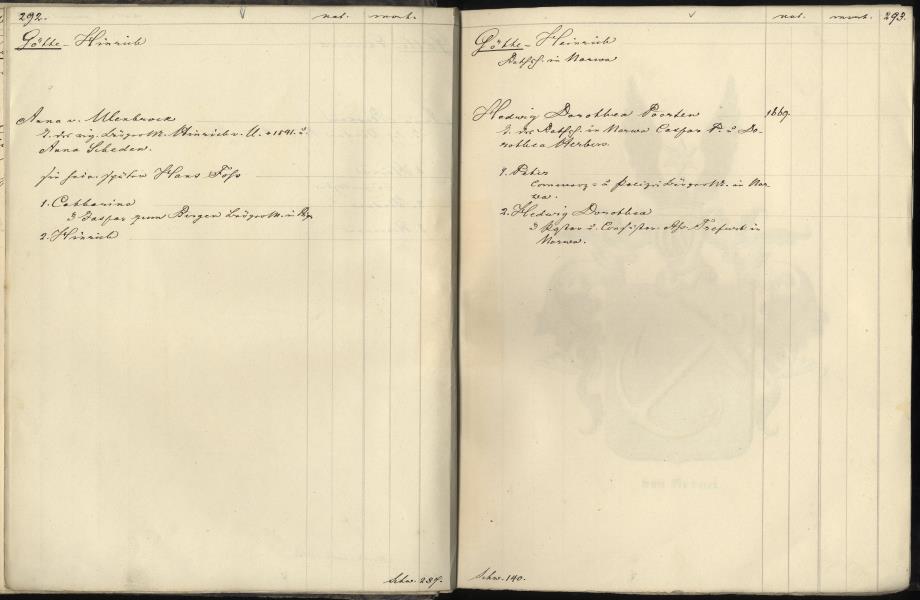 292.
nat. mort.
Götte - Hinrich
Anna v. Ulenbrock
T. des rig. Bürgerm. Hinrich v. U. + 1591. u.
Anna Scheden.
sie heir. später Hans Foss
1. Catharina
Bürgerm. in
2. Hinrich
Schw. 237.
nat. mort. 293.
Götte - Heinrich
Rathsh. in Narwa
Hedwig Dorothea Poorten 1669.
T. des Rathsh. in Narwa Caspar P. u. Do-
rothea Herbers.
1. Peter
Commerz- u. Bürgerm. in Nar-
wa.
2. Hedwig Dorothea
Pastor u. Consistor. Ass. in
Narwa.
Schw. 140.